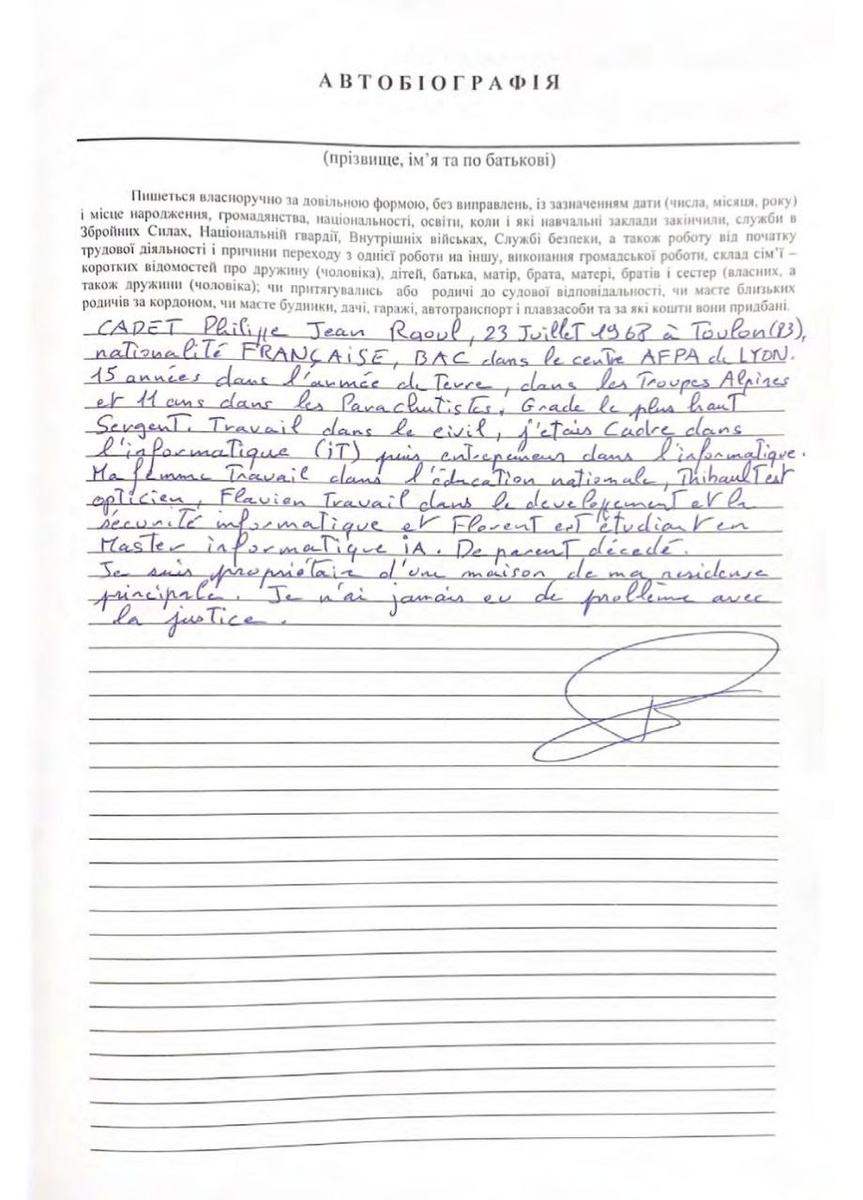 АВТОБІОГРАФІЯ
(прізвище, ім’я та по батькові)
Пишеться власноручно за довільною формою, без виправлень, із зазначенням дати (числа, місяця, року)
і місце народження, громадянства, національності, освіти, коли і які навчальні заклади закінчили, служби в
Збройних Силах, Національній гвардії, Внутрішніх військах, Службі безпеки, а також роботу від початку
трудової діяльності і причини переходу з однієї роботи на іншу, виконання громадської роботи, склад сім’ї –
коротких відомостей про дружину (чоловіка), дітей, батька, матір, брата, матері, братів і сестер (власних, а
також дружини (чоловіка); чи притягувались або родичі до судової відповідальності, чи маєте близьких
родичів за кордоном, чи маєте будинки, дачі, гаражі, автотранспорт і плавзасоби та за які кошти вони придбані.
CADET Philippe Jean Raoul, 23 Juillet 1968 à Toulon (83),
nationalité FRANÇAISE, BAC dans le centre AFPA de LYON.
15 années dans l'armée de Terre, dans les Troupes Alpines
et 11 ans dans les Parachutistes. Grade le plus haut
Sergent. Travail dans le civil, j'etais Cadre dans
l'informatique (iT) puis entrepreneur dans l'informatique.
Ma femme Travail dans l'éducation nationale, Thibault est
opticien, Flavien Travail dans le developpement et la
sécurité informatique et Florent est étudiant en
Master informatique iA. De parent décedé.
Je suis propriétair d'une maison de ma residense
principale. Je n'ai jamais eu de problème avec
la justice.